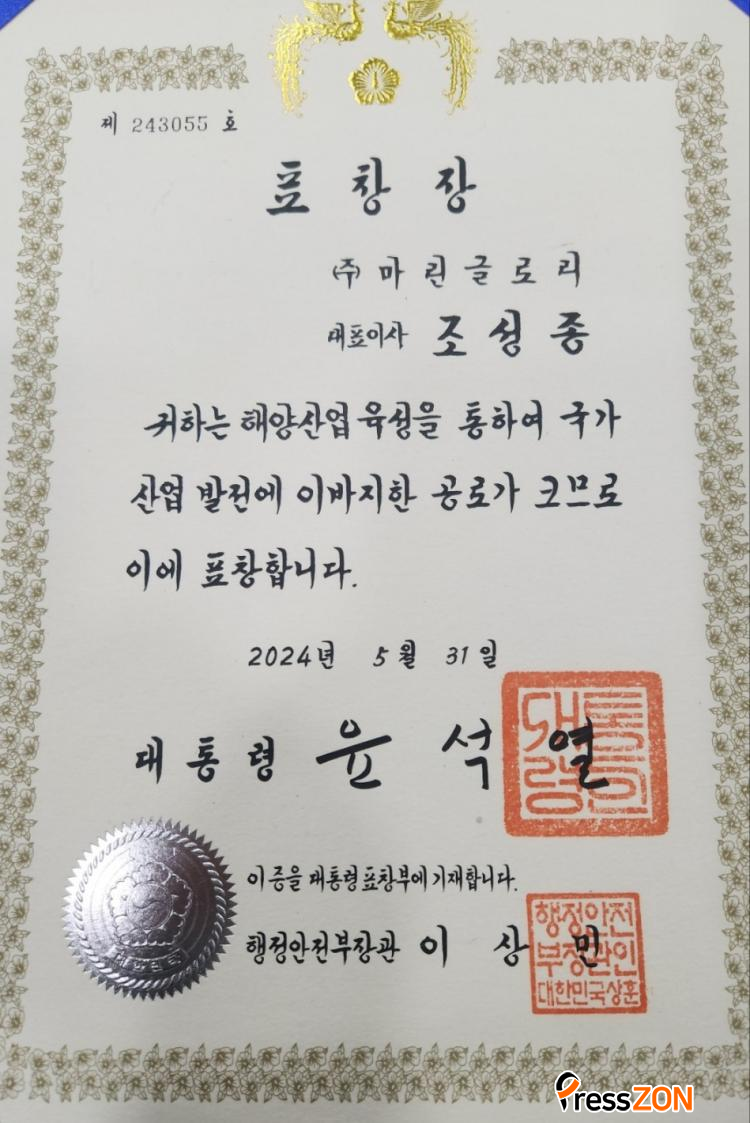 제 243055 호
표창장
(주)마린글로리
대표이사 조성종
귀하는 해양산업 육성을 통하여 국가
산업 발전에 이바지한 공로가 크므로
이에 표창합니다.
2024년 5월 31일
대통령 윤석열
대통령인
이 증을 대통령표창부에 기재합니다.
행정안전부장관 이상민
행정안전
부장관인
대한민국상훈
PressZON